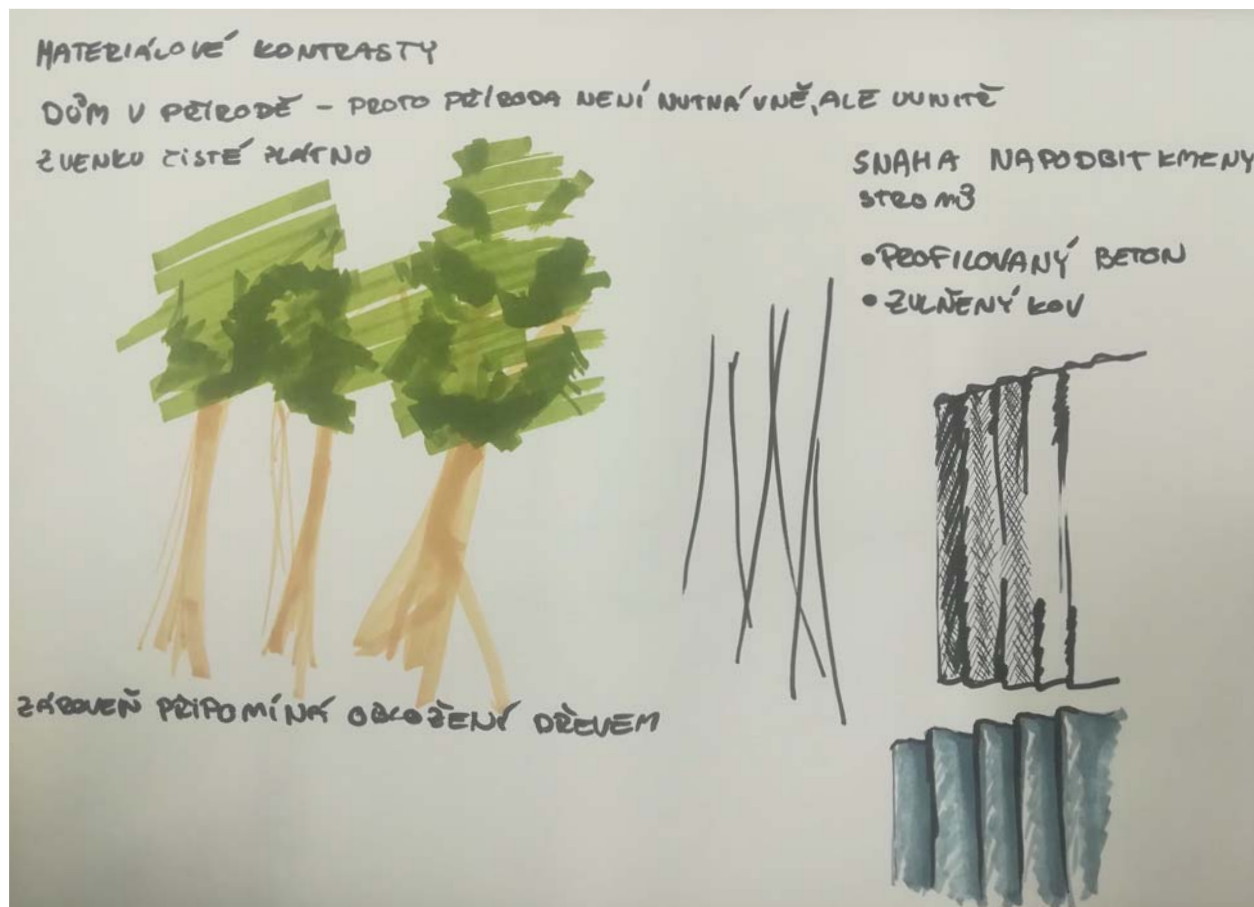 MATERIÁLOVÉ KONTRASTY
DŮM V PŘÍRODĚ - PROTO PŘÍRODA NENÍ NUTNÁ VNĚ, ALE UVNITŘ
ZVENKU ČISTÉ PLÁTNO
SNAHA NAPODBIT KMENY
STROMŮ
• PROFILOVANÝ BETON
• ZVLNĚNÝ KOV
ZÁROVEŇ PŘIPOMÍNÁ OBLOŽENÍ DŘEVEM